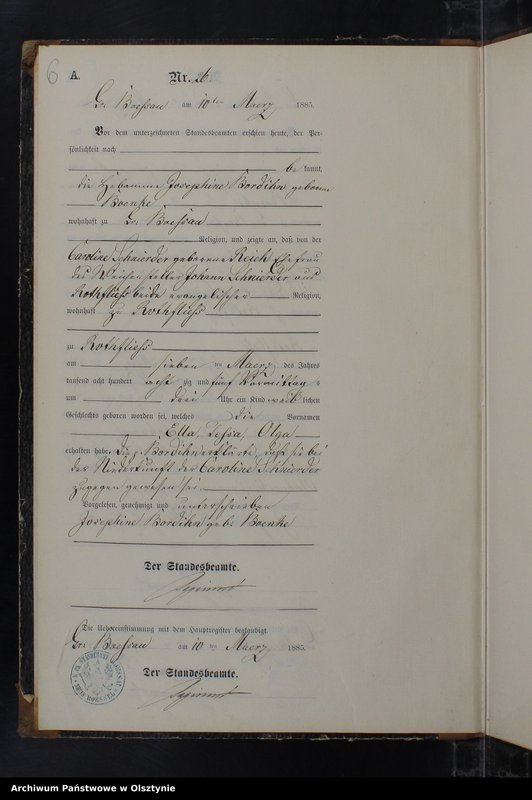 6
A.
Nr. 26.
Gr. Boessau am 10ten Maerz 1885.
Vor dem unterzeichneten Standesbeamten erschien heute, der Per-
sönlichkeit nach
be kannt,
die Hebamme Josephine Bordihn geborene
Boenke
wohnhaft zu Gr. Boessau
Religion, und zeigte an, daß von der
Caroline Schnierder geborene Reich Ehefrau
des Weichenstellers Johann Schnierder aus
Rothfliess beide evangelischer Religion,
wohnhaft zu Rothfliess
zu Rothfliess
am sieben ten Maerz des Jahres
tausend acht hundert acht zig und fünf Vormittag s
um drei Uhr ein Kind weib lichen
Geschlechts geboren worden sei, welches die Vornamen
Ella, Olga
erhalten habe. Die p. Bordihn erklärte, daß sie bei
der Niederkunft der Caroline Schnierder
zugegen gewesen sei.
Vorgelesen, genehmigt und unterschrieben
Josephine Bordihn geb. Boenke
Der Standesbeamte.
Die Uebereinstimmung mit dem Hauptregister beglaubigt.
Gr. Boessau am 10ten Maerz 1885.
Der Standesbeamte.
Archiwum Państwowe w Olsztynie